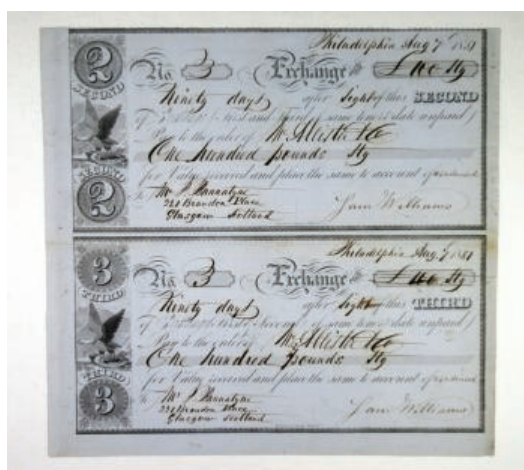 2
SECOND
SECOND
2
Philadelphia Aug 7th 1851
No. 3 Exchange for £100 Stg
Ninety days after Sight of this SECOND
of Exchange First and Third of same tenor & date unpaid
Pay to the order of McAllister & Co
One hundred pounds Stg
for Value received and place the same to account
To Mr P.
Brandon Place
Glasgow Scotland
Sam Williams
3
THIRD
THIRD
3
Philadelphia Aug. 7 1851
No. 3 Exchange for £100 Stg
Ninety days after Sight of this THIRD
of same tenor & date unpaid
Pay to the order of McAllister & Co
One hundred pounds Stg
for Value received and place the same to account
To Mr P.
Brandon Place
Glasgow Scotland
Sam Williams